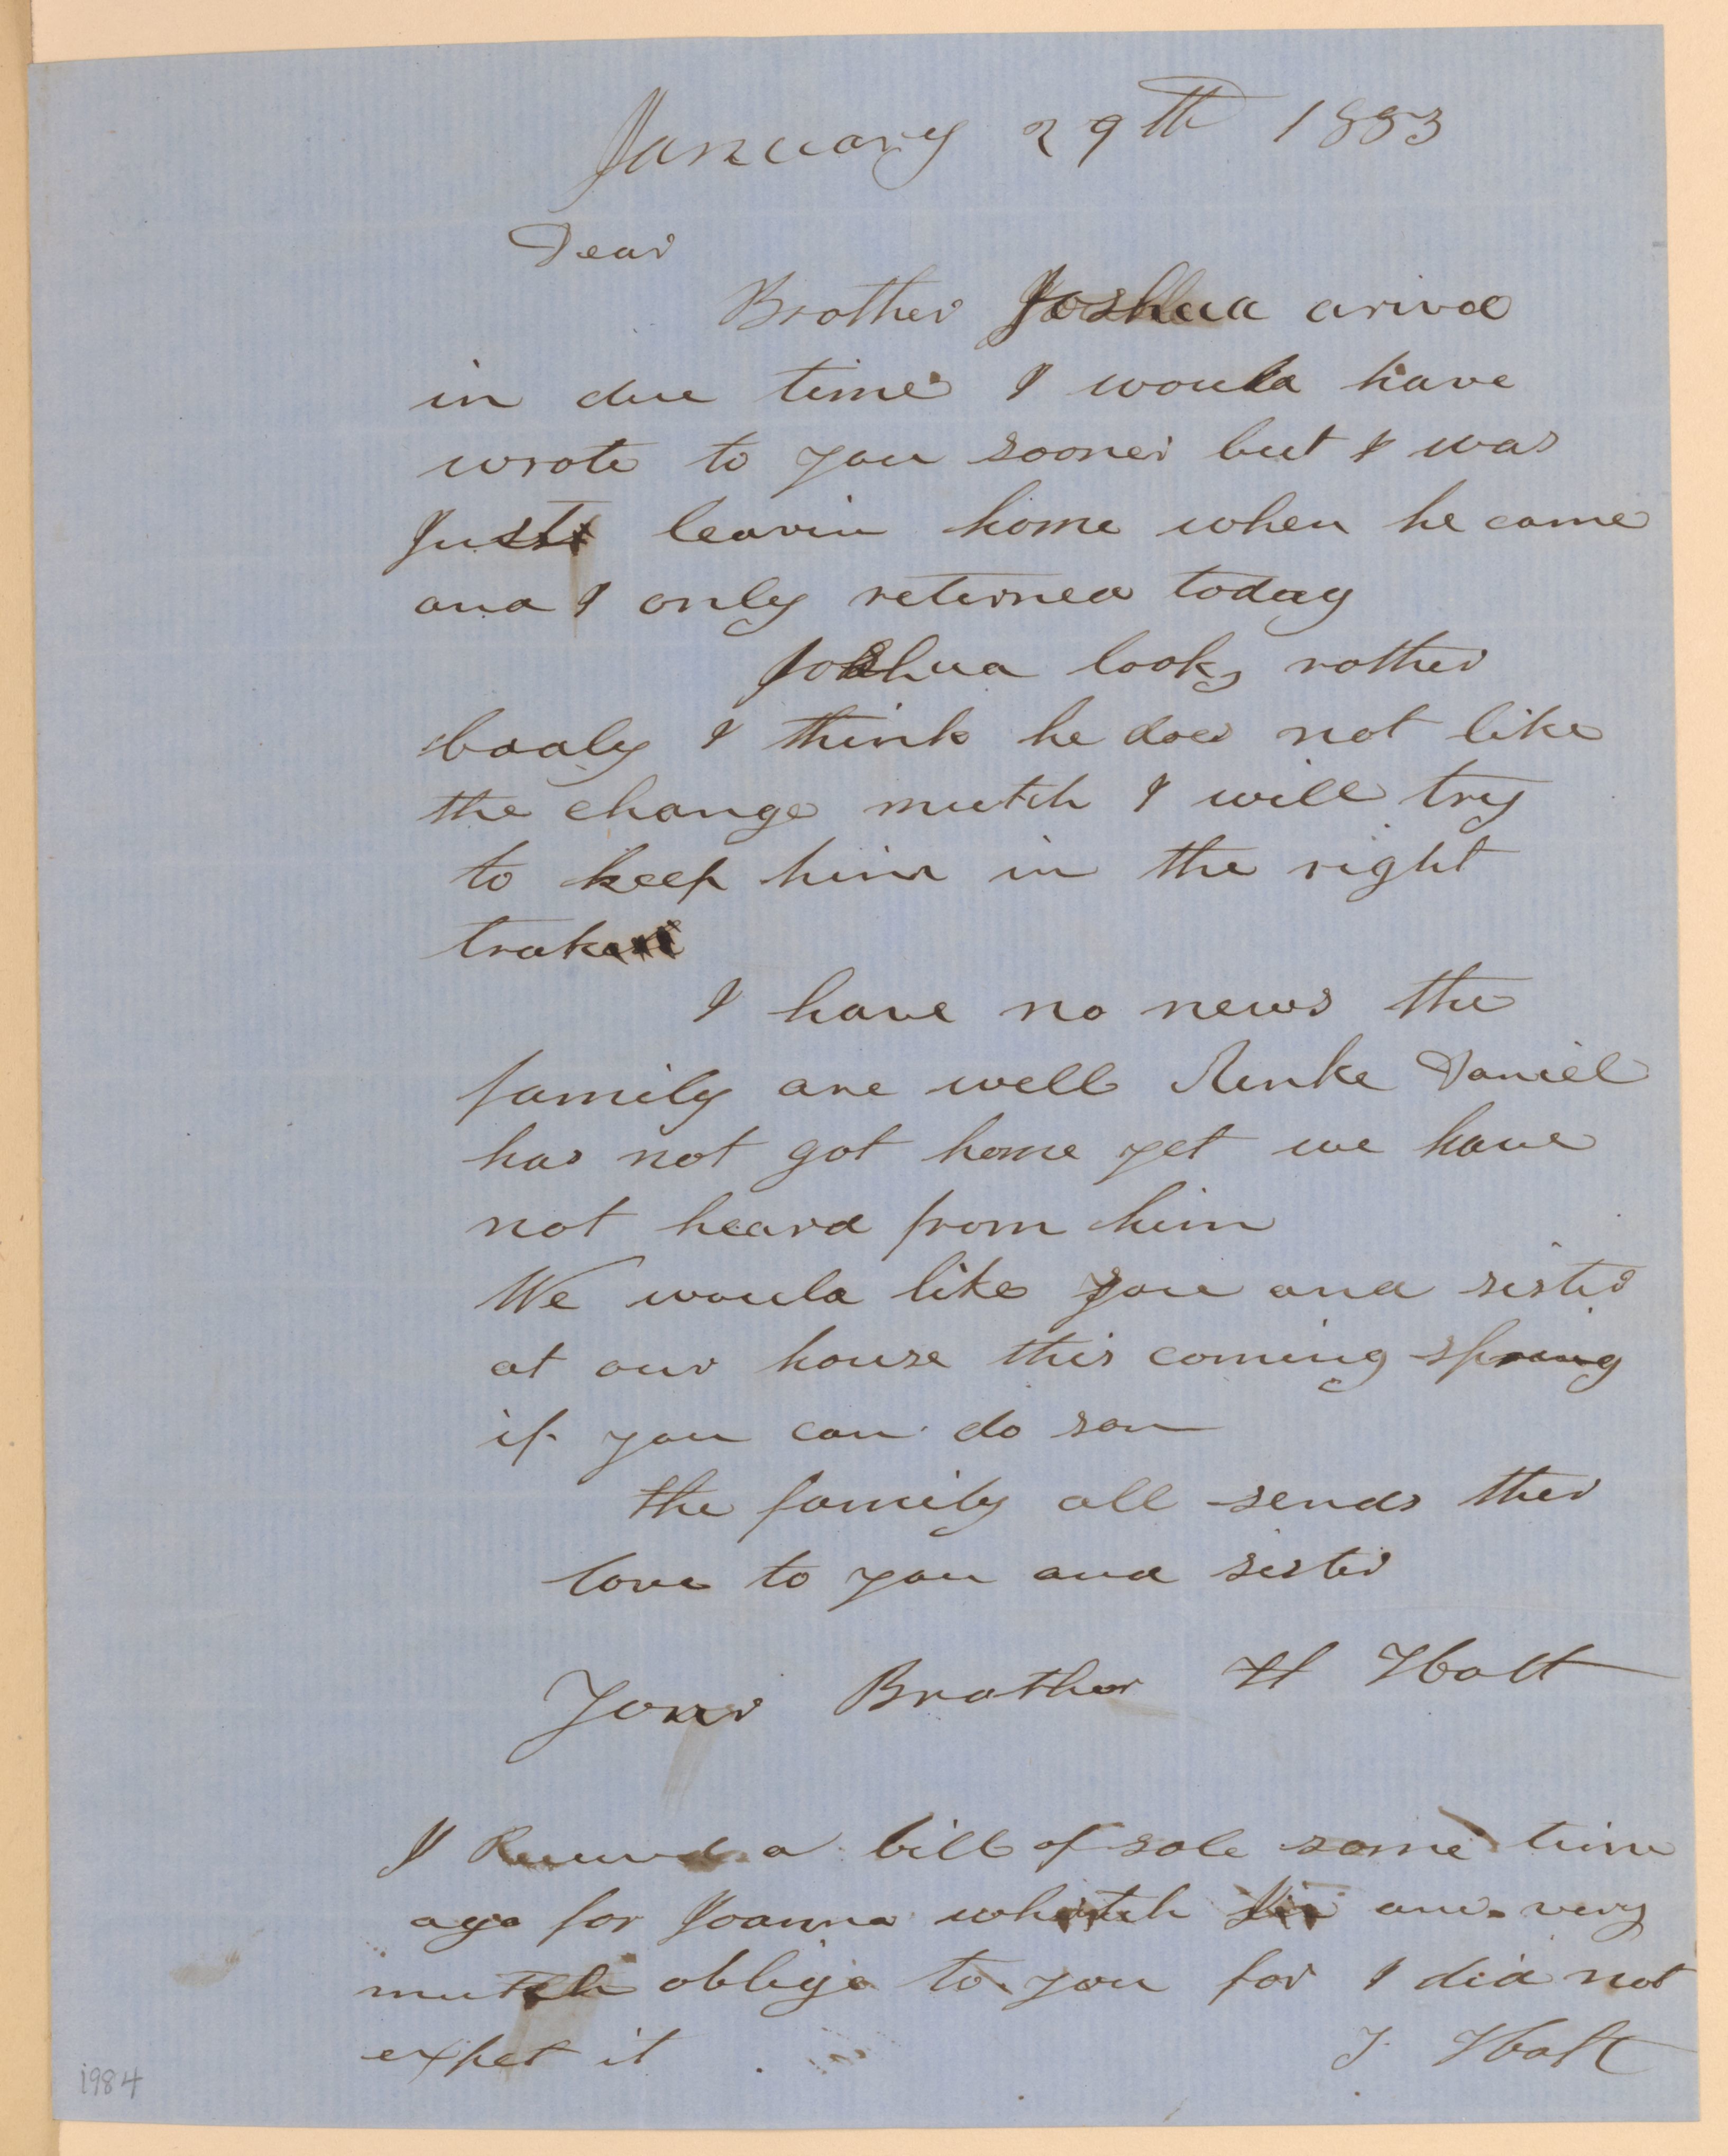 January 29th 1853
Dear
Brother Joshua arived
in due time I would have
wrote to you sooner but I was
Just leavin home when he came
and I only returned today
Joshua looks rather
badly I think he does not like
the change mutch I will try
to keep him in the right
trak
I have no news the
family are well Unke Daniel
has not got home yet we have
not heard from him
We would like you and sister
at our house this coming spring
if you can do son
the family all sends ther
love to you and sister
Your Brother H Holt
I Received a bill of sale some time
ago for Joanna whitch I am very
mutch oblige to you for I did not
expet it J. Holt
1984